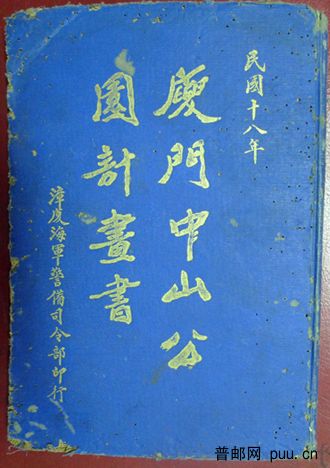 民國十八年
廈門中山公
園計畫書
漳廈海軍警備司令部印行
普邮网 puu.cn